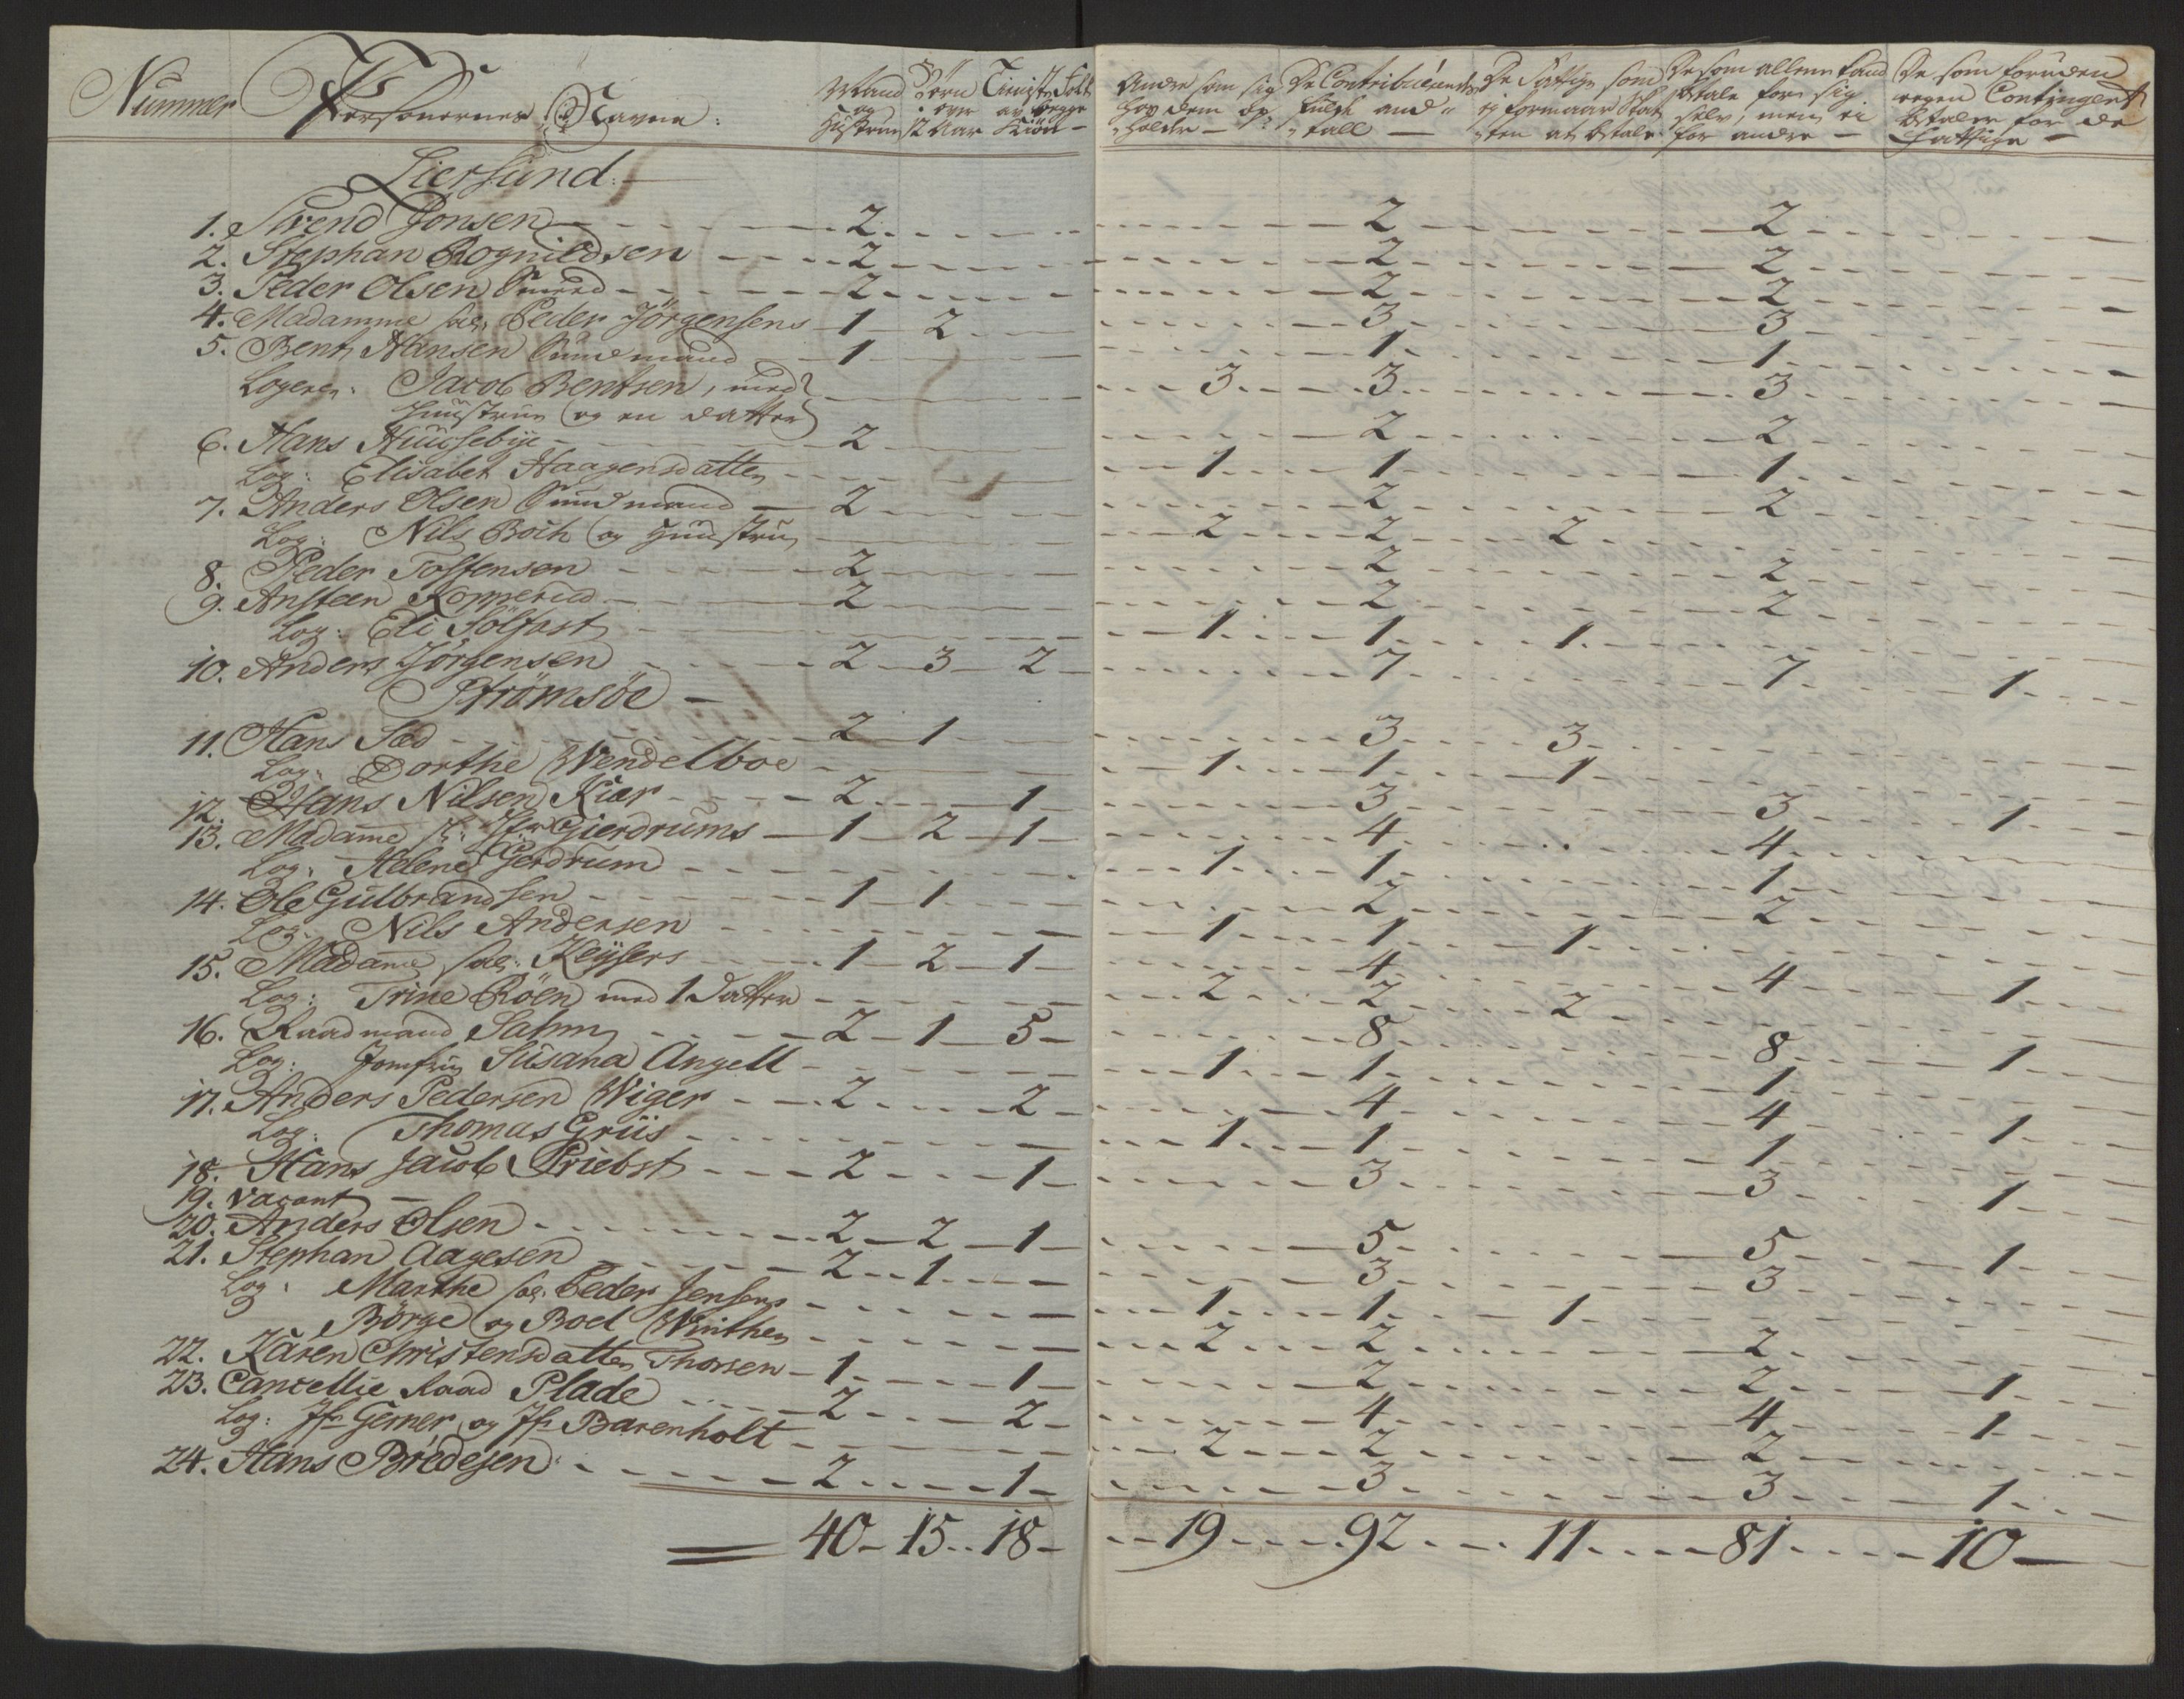 Nummer Persohnernes Navne: Mand og Hustrue Börn over 12 Aar Tienist Folk av begge Kiön - Andre som sig hos dem op holder - De Contribuerendes fulde and tall - De Fattige som ej formaar Skat ten at betale De som allene kand betale for sig selv, men ei for andre - De som foruden egen Contingent betaler for de Fattige -
Liersund. -
1. Svend Jonsen 2 2 2
2. Stephan Rognildsen 2 2 2
3. Peder Olsen Smed 2 2 2
4. Madamme sal. Peder Jörgensens 1 2 3 3
5. Bent Hansen Sundmand 1 1 1
Logerer: Jacob Bentsen, med 3 3 3
Huustrue og en datter
6. Hans Huusebÿe 2 2 2
Log: Elisabet Haagensdatter 1 1 1
7. Anders Olsen Sundmand 2 2 2
Log: Nils Boch og Huustru 2 2 2
8. Peder Tostensen 2 2 2
9. Ansteen Kopperud 2 2 2
Log: Eli Solfast 1 1 1
10. Anders Jörgensen 2 3 2 7 7 1
Strömsöe -
11. Hans Sæd 2 1 3 3
Log: Dorthe Wendelboe 1 1 1
12. Hans Nilsen Kiær 2 1 3 3 1
13. Madame sl: Gierdrums 1 2 1 4 4
Log: Helene Gerdrum 1 1 1
14. Ole Gulbrandsen 1 1 2 2
Log: Nils Andersen 1 1 1
15. Madame sal: Keÿsers 1 2 1 4 4 1
Log: Trine Röen med 1 datter 2 2 2
16. Raadmand Sahm 2 1 5 8 8 1
Log: Jomfru Susana Angell 1 1 1
17. Anders Pedersen Wiger 2 2 4 4 1
Log: Thomas Griis 1 1 1
18. Hans Jacob Priebst 2 1 3 3 1
19. vacant -
20. Anders Olsen 2 2 1 5 5 1
21. Stephan Aagesen 2 1 3 3
Log: Marthe sal. Peder Jensens 1 1 1
Börge og Boel Winther 2 2 2
22. Karen Christensdatter Thorsen 1 1 2 2 1
23. Cancellie Raad Plade 2 2 4 4 1
Log: Jfr Gerner, og Jfr Barenholt 2 2 2
24. Hans Bredesen 2 1 3 3 1
40 - 15 - 18 - 19 - 92 - 11 - 81 - 10 -